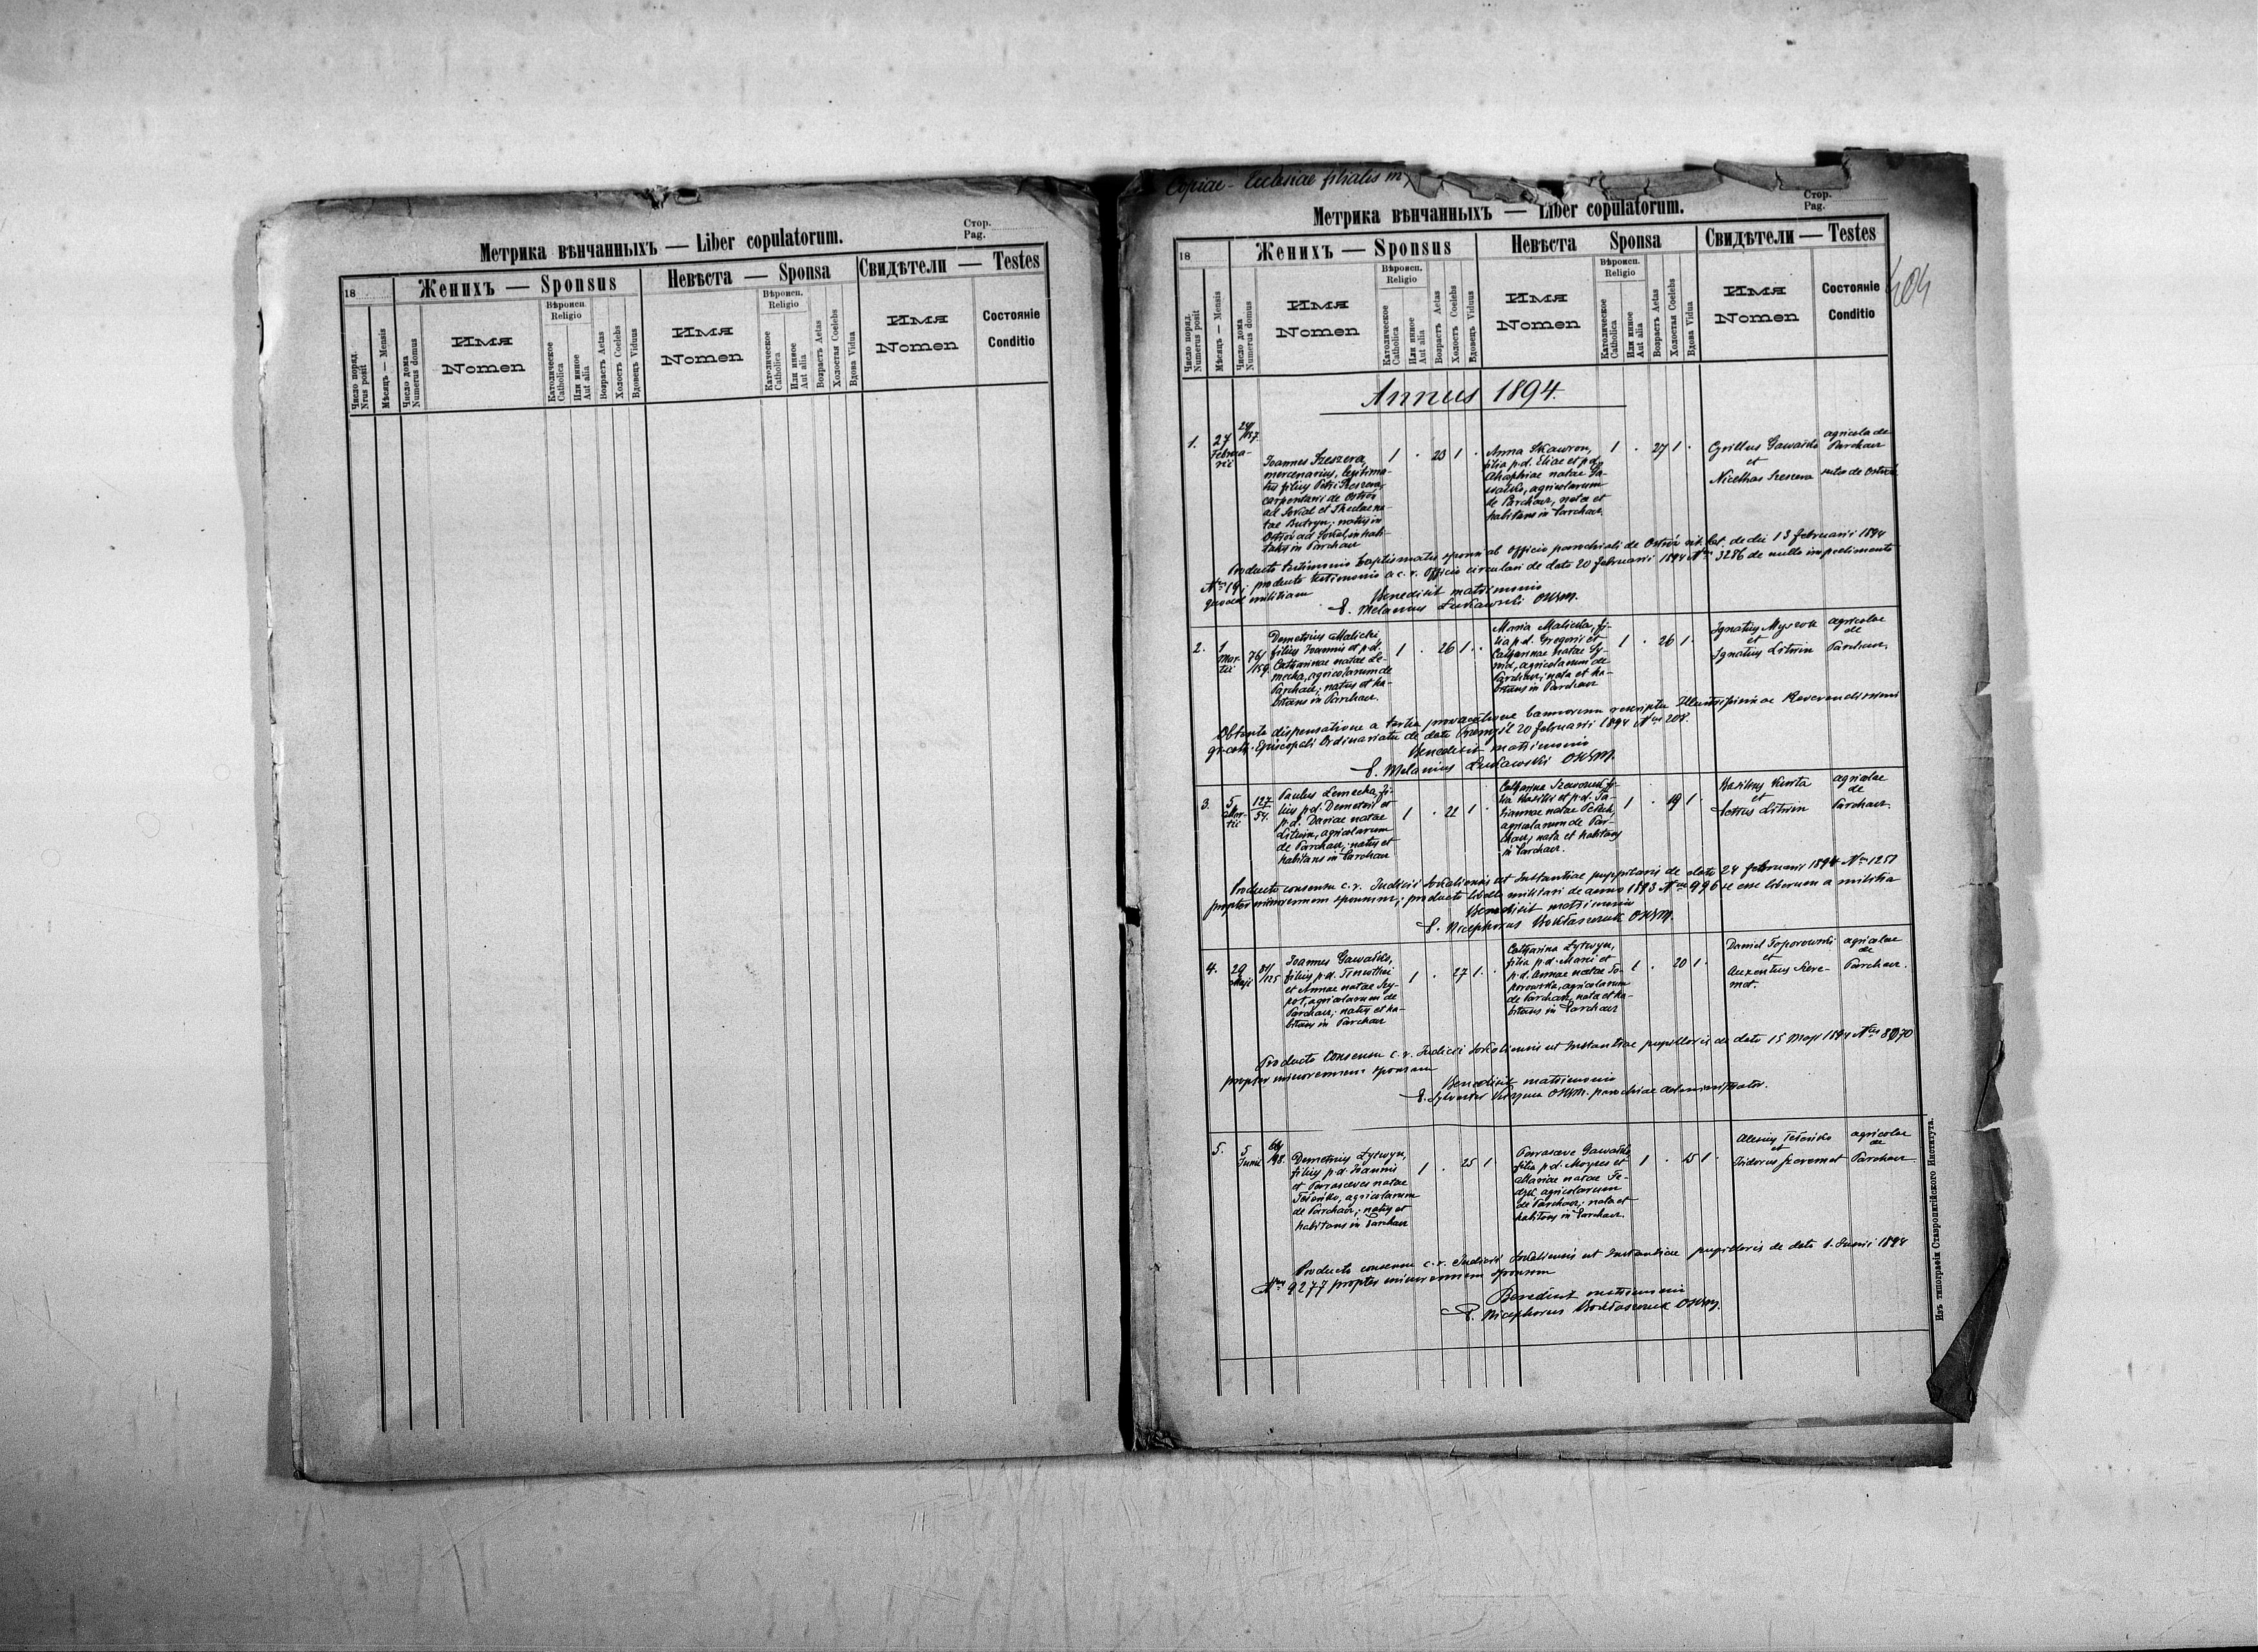 Стор.
Pag.
Метрика вѣнчанныхъ — Liber copulatorum.
18
Женихъ — Sponsus
Невѣста — Sponsa
Свидѣтели — Testes
Число поряд.
Nrus posit
Мѣсяцъ — Mensis
Число дома
Numerus domus
Имя
Nomen
Вѣроисп.
Religio
Католическое
Catholica
Или иное
Aut alia
Возрастъ Aetas
Холостъ Coelebs
Вдовець Viduus
Имя
Nomen
Вѣроисп.
Religio
Католическое
Catholica
Или иное
Aut alia
Возрастъ Aetas
Холостая Coelebs
Вдова Vidua
Имя
Nomen
Состояніе
Conditio
Copiae - Ecclesiae filialis in
Стор.
Pag.
Метрика вѣнчанныхъ — Liber copulatorum.
18
Женихъ — Sponsus
Невѣста Sponsa
Свидѣтели — Testes
Число поряд.
Numerus posit
Мѣсяцъ — Mensis
Число дома
Numerus domus
Имя
Nomen
Вѣроисп.
Religio
Католическое
Catholica
Или иное
Aut alia
Возрастъ Aetas
Холостъ Coelebs
Вдовецъ Viduus
Имя
Nomen
Вѣроисп.
Religio
Католическое
Catholica
Или иное
Aut alia
Возрастъ Aetas
Холостая Coelebs
Вдова Vidua
Имя
Nomen
Состояніе
Conditio
404
Annus 1894.
1.
27
Februa-
rii
Joannes Szeszera,
mercenarius, legitimus
filius Petri Szeszera,
carpentarii de Ostrów
ad Sokal et Theclae na-
tae Butryn; natus in
Ostrów ad Sokal, inhabi-
tans in Parchacz
1 . 23 1 .
Anna Skawron,
filia p.d. Eliae et p.d.
Ahaphiae natae Ga-
wałko, agricolarum
de Parchacz, nata et
habitans in Parchacz.
1 . 27 1 .
Cyrillus Gawałko
et
Nicethas Szeszera
agricola de
Parchacz
sutor de Ostrów
Producto testimonio baptismatis sponsi ab officio parochiali de Ostrów de die 13 februarii 1894
Nro 19; producto testimonio a c. r. officio circulari de dato 20 februarii 1894 Nro 3286 de nullo impedimento
quoad militiam
Benedixit matrimonio
P. Melanius Łukawski OSBM.
2.
1
Mar-
tii
76/
159.
Demetrius Malicki
filius Joannis et p.d.
Catharinae natae Le-
mecha, agricolarum de
Parchacz; natus et ha-
bitans in Parchacz.
1 . 26 1 .
Maria Malicka, fi-
lia p.d. Gregorii et
Catharinae natae
agricolarum de
Parchacz; nata et ha-
bitans in Parchacz
1 . 26 1 .
Ignatius
et
Ignatius Litwin
agricolae
de
Parchacz.
Obtenta dispensatione a tertia promulgatione bannorum rescripto Illustrissimi ac Reverendissimi
gr. cath. Episcopali Ordinariatu de dato Przemyśl 20 februarii 1894 Nro 208.
Benedixit matrimonio
P. Melanius Łukawski OSBM.
3.
5
Mar-
tii
127
54.
Paulus Lemecha, fi-
lius p.d. Demetrii et
p.d. Dariae natae
Litwin, agricolarum
de Parchacz; natus et
habitans in Parchacz
1 . 22 1 .
Catharina fi-
lia Basilii et p.d. Ta-
tiannae natae
agricolarum de Par-
chacz; nata et habitans
in Parchacz.
1 . 19 1 .
Basilius
et
Litwin
agricolae
de
Parchacz.
Producto consensu c. r. Judicii Sokaliensis ut Instantiae pupillaris de dato 24 februarii 1894 Nro 1251
propter minorennem sponsum; producto libello militari de anno 1893 Nro 996 se esse liberum a militia
Benedixit matrimonio
P. Nicephorus OSBM.
4.
29
Maji
81/
125
Joannes Gawałko,
filius p.d. Timothei
et Annae natae Szy-
kot, agricolarum de
Parchacz; natus et ha-
bitans in Parchacz
1 . 27 1 .
Catharina Łytwyn,
filia p.d. Marci et
p.d. Annae natae To-
porowska, agricolarum
de Parchacz, nata et ha-
bitans in Parchacz
1 . 20 1 .
Daniel Toporowski
et
Auxentius Szere-
met.
agricolae
de
Parchacz.
Producto Consensu c. r. Judicii Sokaliensis ut Instantiae pupillaris de dato 15 Maji 1894
propter minorennem sponsam
Benedixit matrimonio
P. Sylvester OSBM. parochiae administrator.
5.
5
Junii
64/
98.
Demetrius Łytwyn,
filius p.d. Joannis
et Parasceves natae
agricolarum
de Parchacz; natus et
habitans in Parchacz
1 . 25 1
Parasceve Gawałko
filia p.d. Moyses et
Mariae natae Fe-
dyk, agricolarum
de Parchacz; nata et
habitans in Parchacz.
1 . 15 1 .
Alexius
et
Isidorus Szeremet
agricolae
de
Parchacz
Producto consensu c. r. Judicii Sokaliensis ut Instantiae pupillaris de dato 1. Junii 1894
Nro 9277 propter minorennem sponsam
Benedixit matrimonio
P. Nicephorus OSBM.
Изъ типографіи Ставропигійского Института.